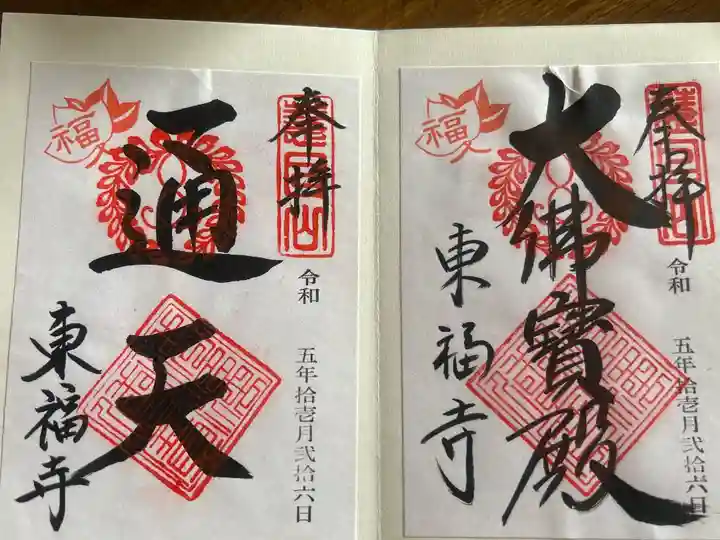 奉拝
大佛寳殿
東福寺
福
令和 五年拾壱月弐拾六日
奉拝
通天
東福寺
福
令和 五年拾壱月弐拾六日